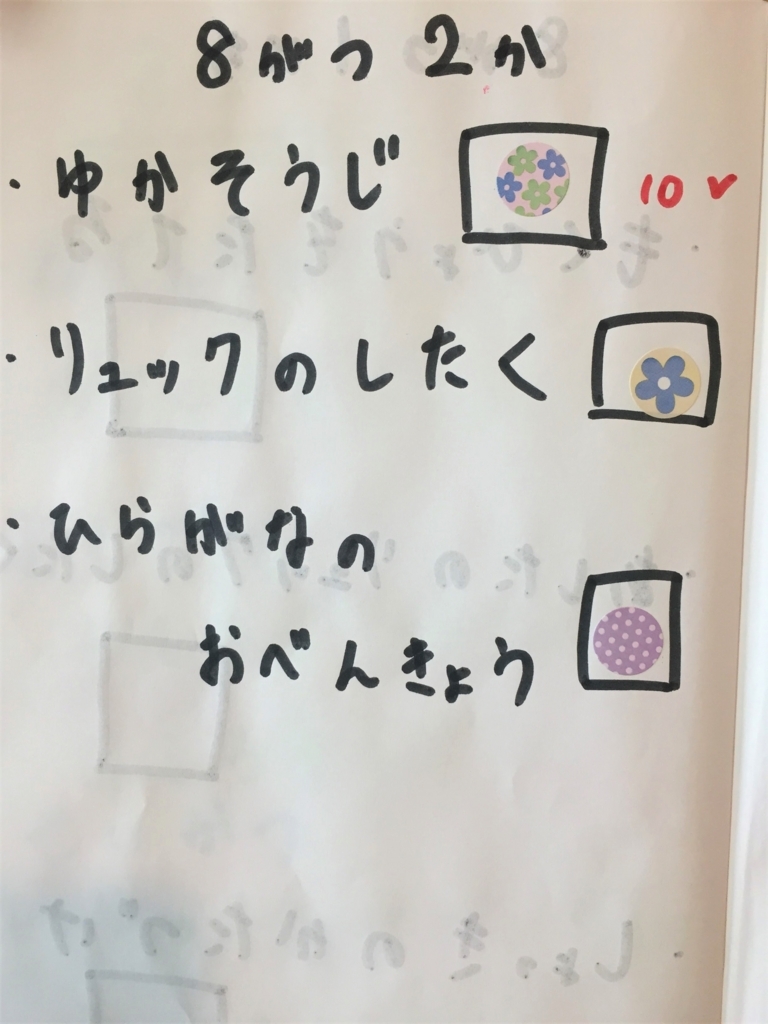 8がつ2か
・ゆかそうじ 10✓
・リュックのしたく
・ひらがなの
おべんきょう